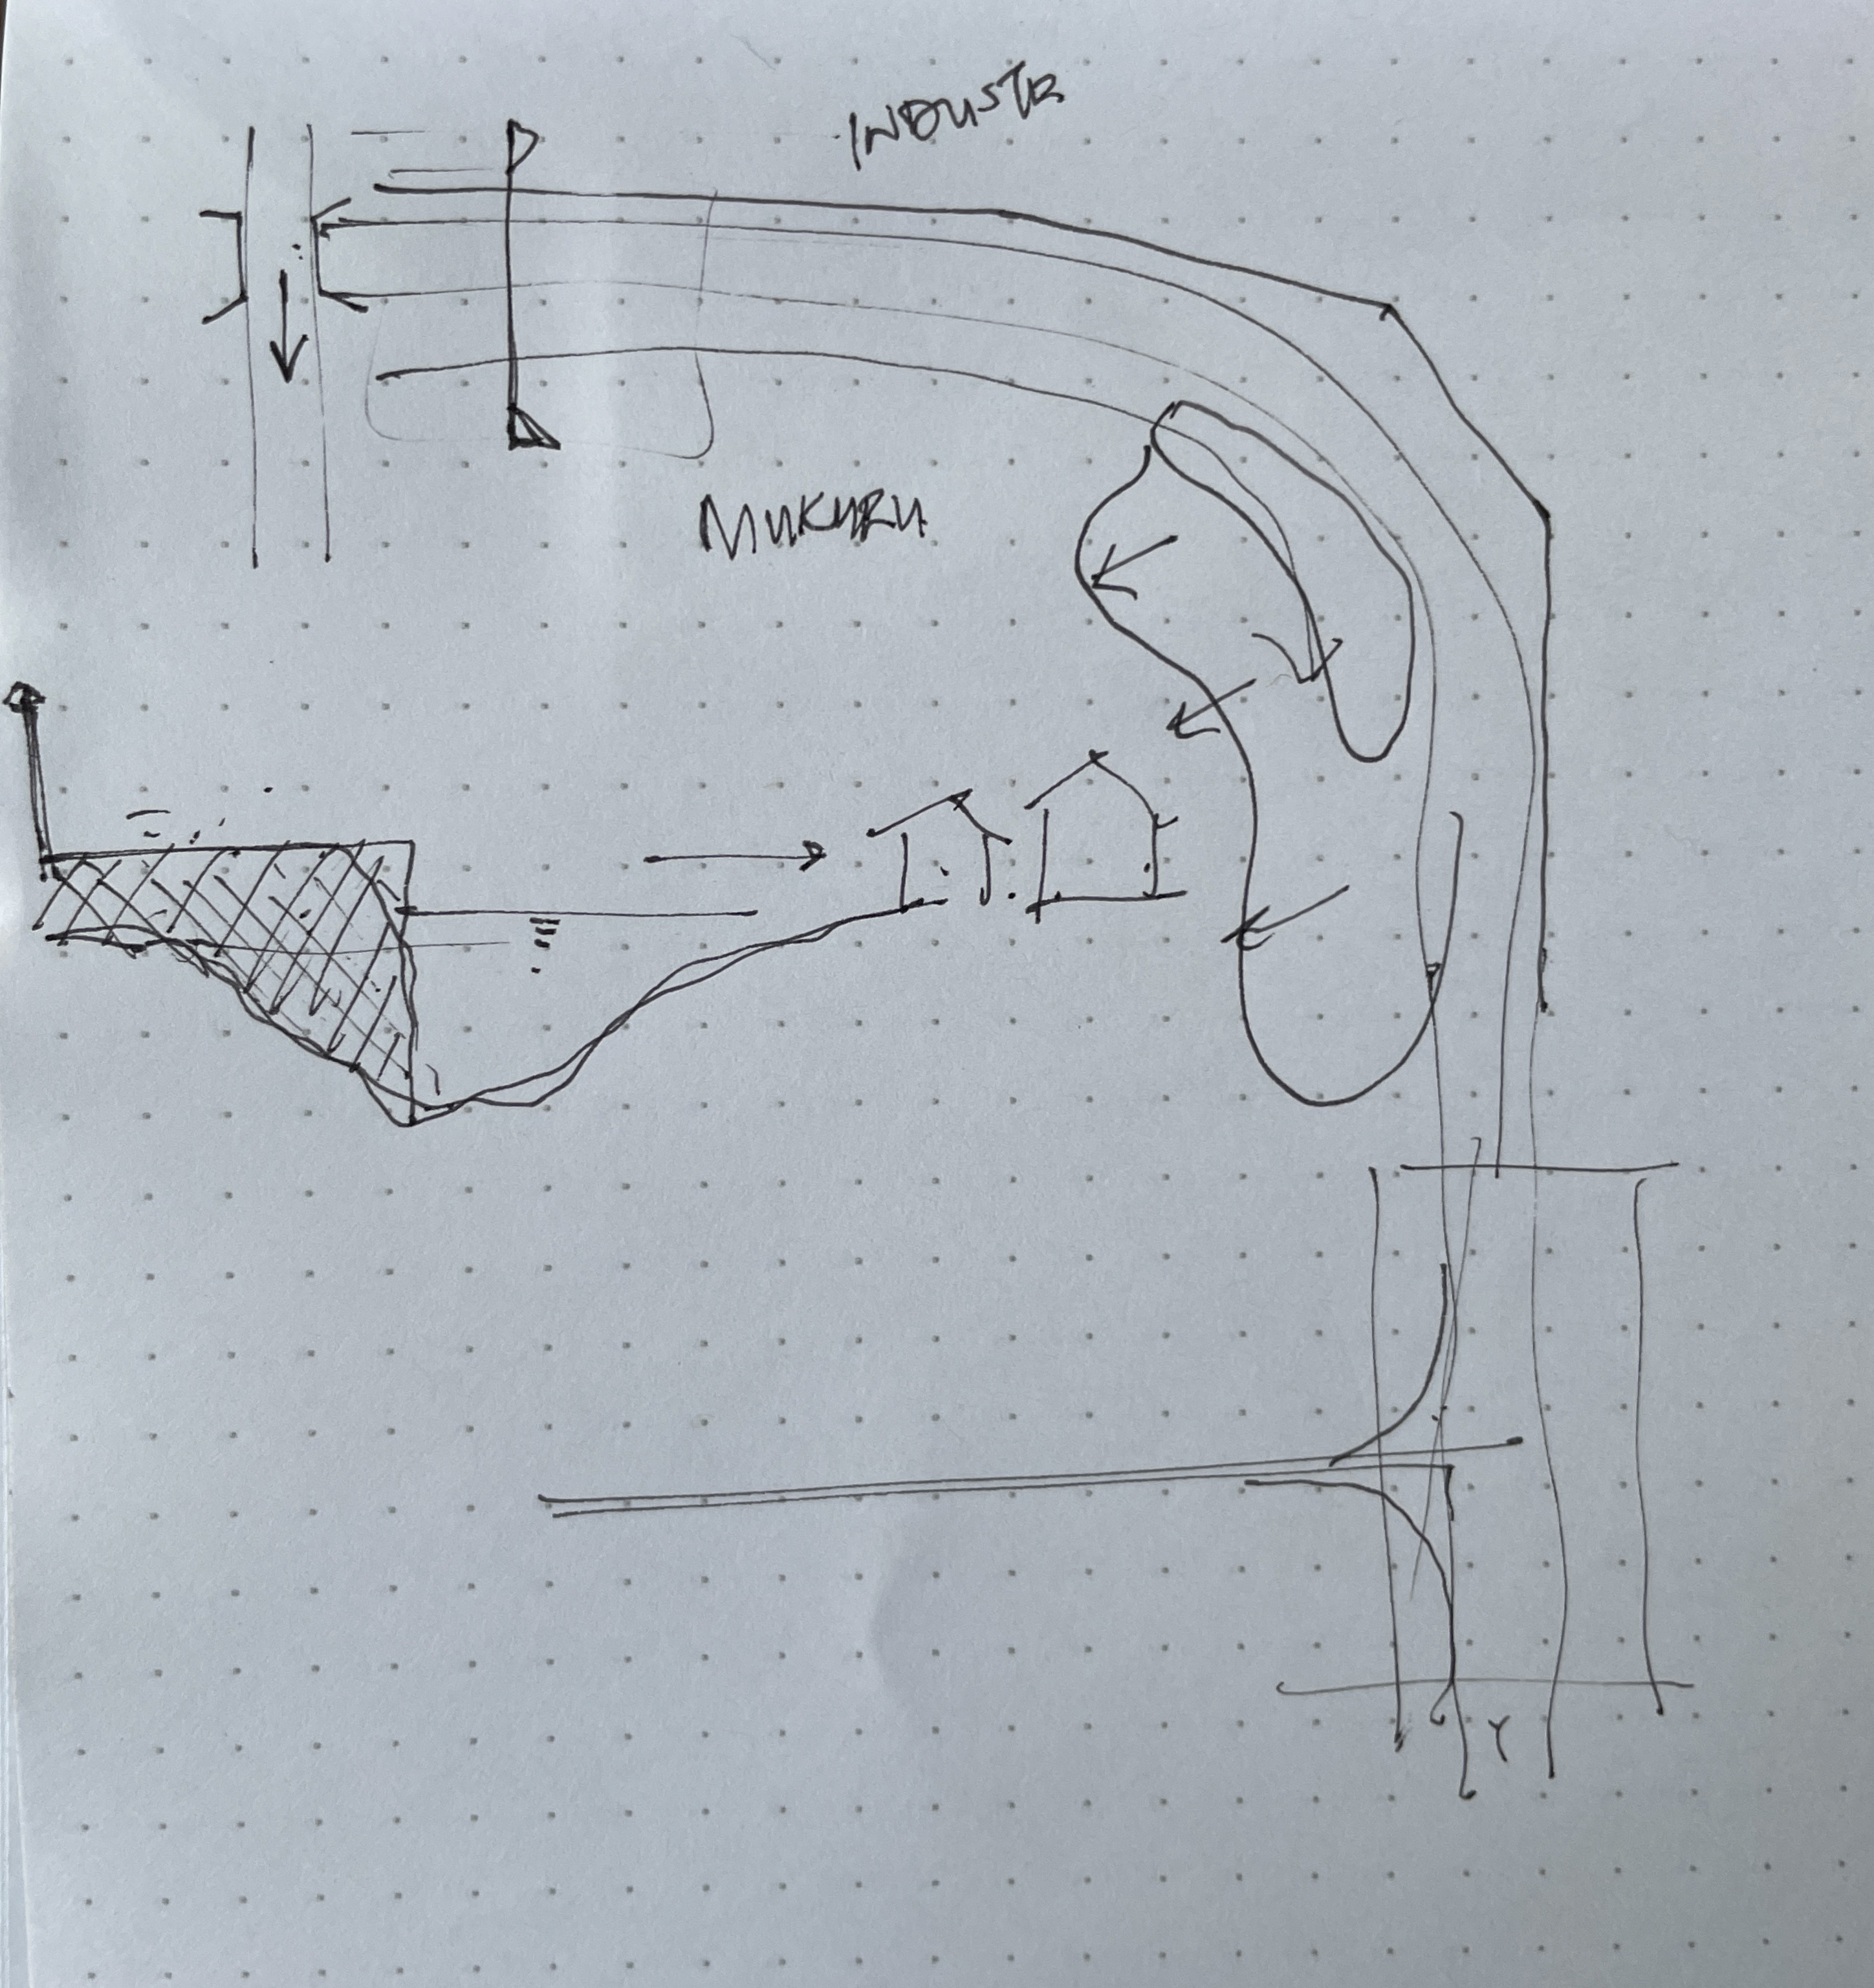 INDUSTR
MUKURU
Y